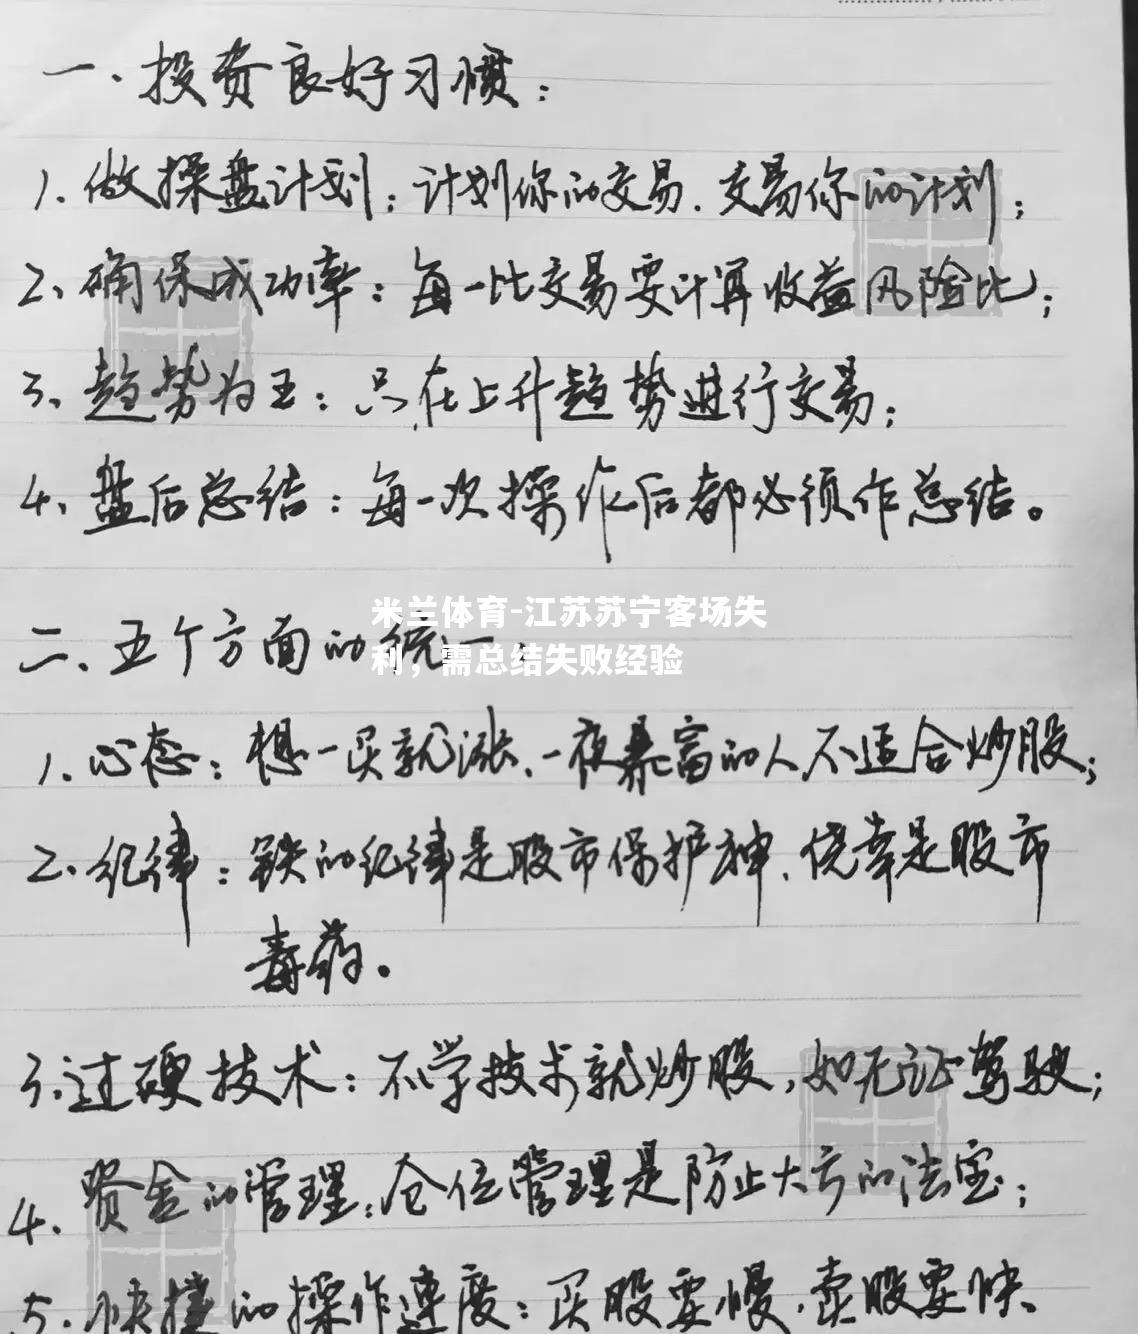 一、投资良好习惯：
1、做操盘计划；计划你的交易、交易你的计划；
2、确保成功率：每一比交易要计算收益风险比；
3、趋势为王：只在上升趋势进行交易；
4、盘后总结：每一次操作后都必须作总结。
二、五个方面的统一：
米兰体育-江苏苏宁客场失
利，需总结失败经验
1、心态：想一买就涨、一夜暴富的人不适合炒股；
2、纪律：铁的纪律是股市保护神、侥幸是股市
毒药。
3、过硬技术：不学技术就炒股，如无证驾驶；
4、资金的管理：仓位管理是防止大亏的法宝；
5、快捷的操作速度：买股要慢、卖股要快、